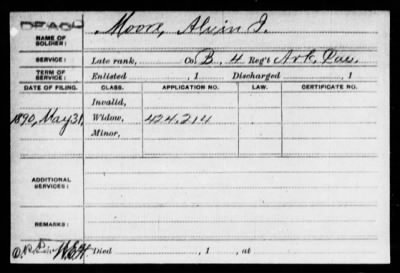 DEAD
NAME OF SOLDIER: Moore, Alvin J.
SERVICE: Late rank, Co. B, 4 Reg't Ark. Cav.
TERM OF SERVICE: Enlisted , 1 Discharged , 1
DATE OF FILING. CLASS. APPLICATION NO. LAW. CERTIFICATE NO.
Invalid,
1890, May 31, Widow, 424,214
Minor,
ADDITIONAL SERVICES:
REMARKS:
Died , 1 , at